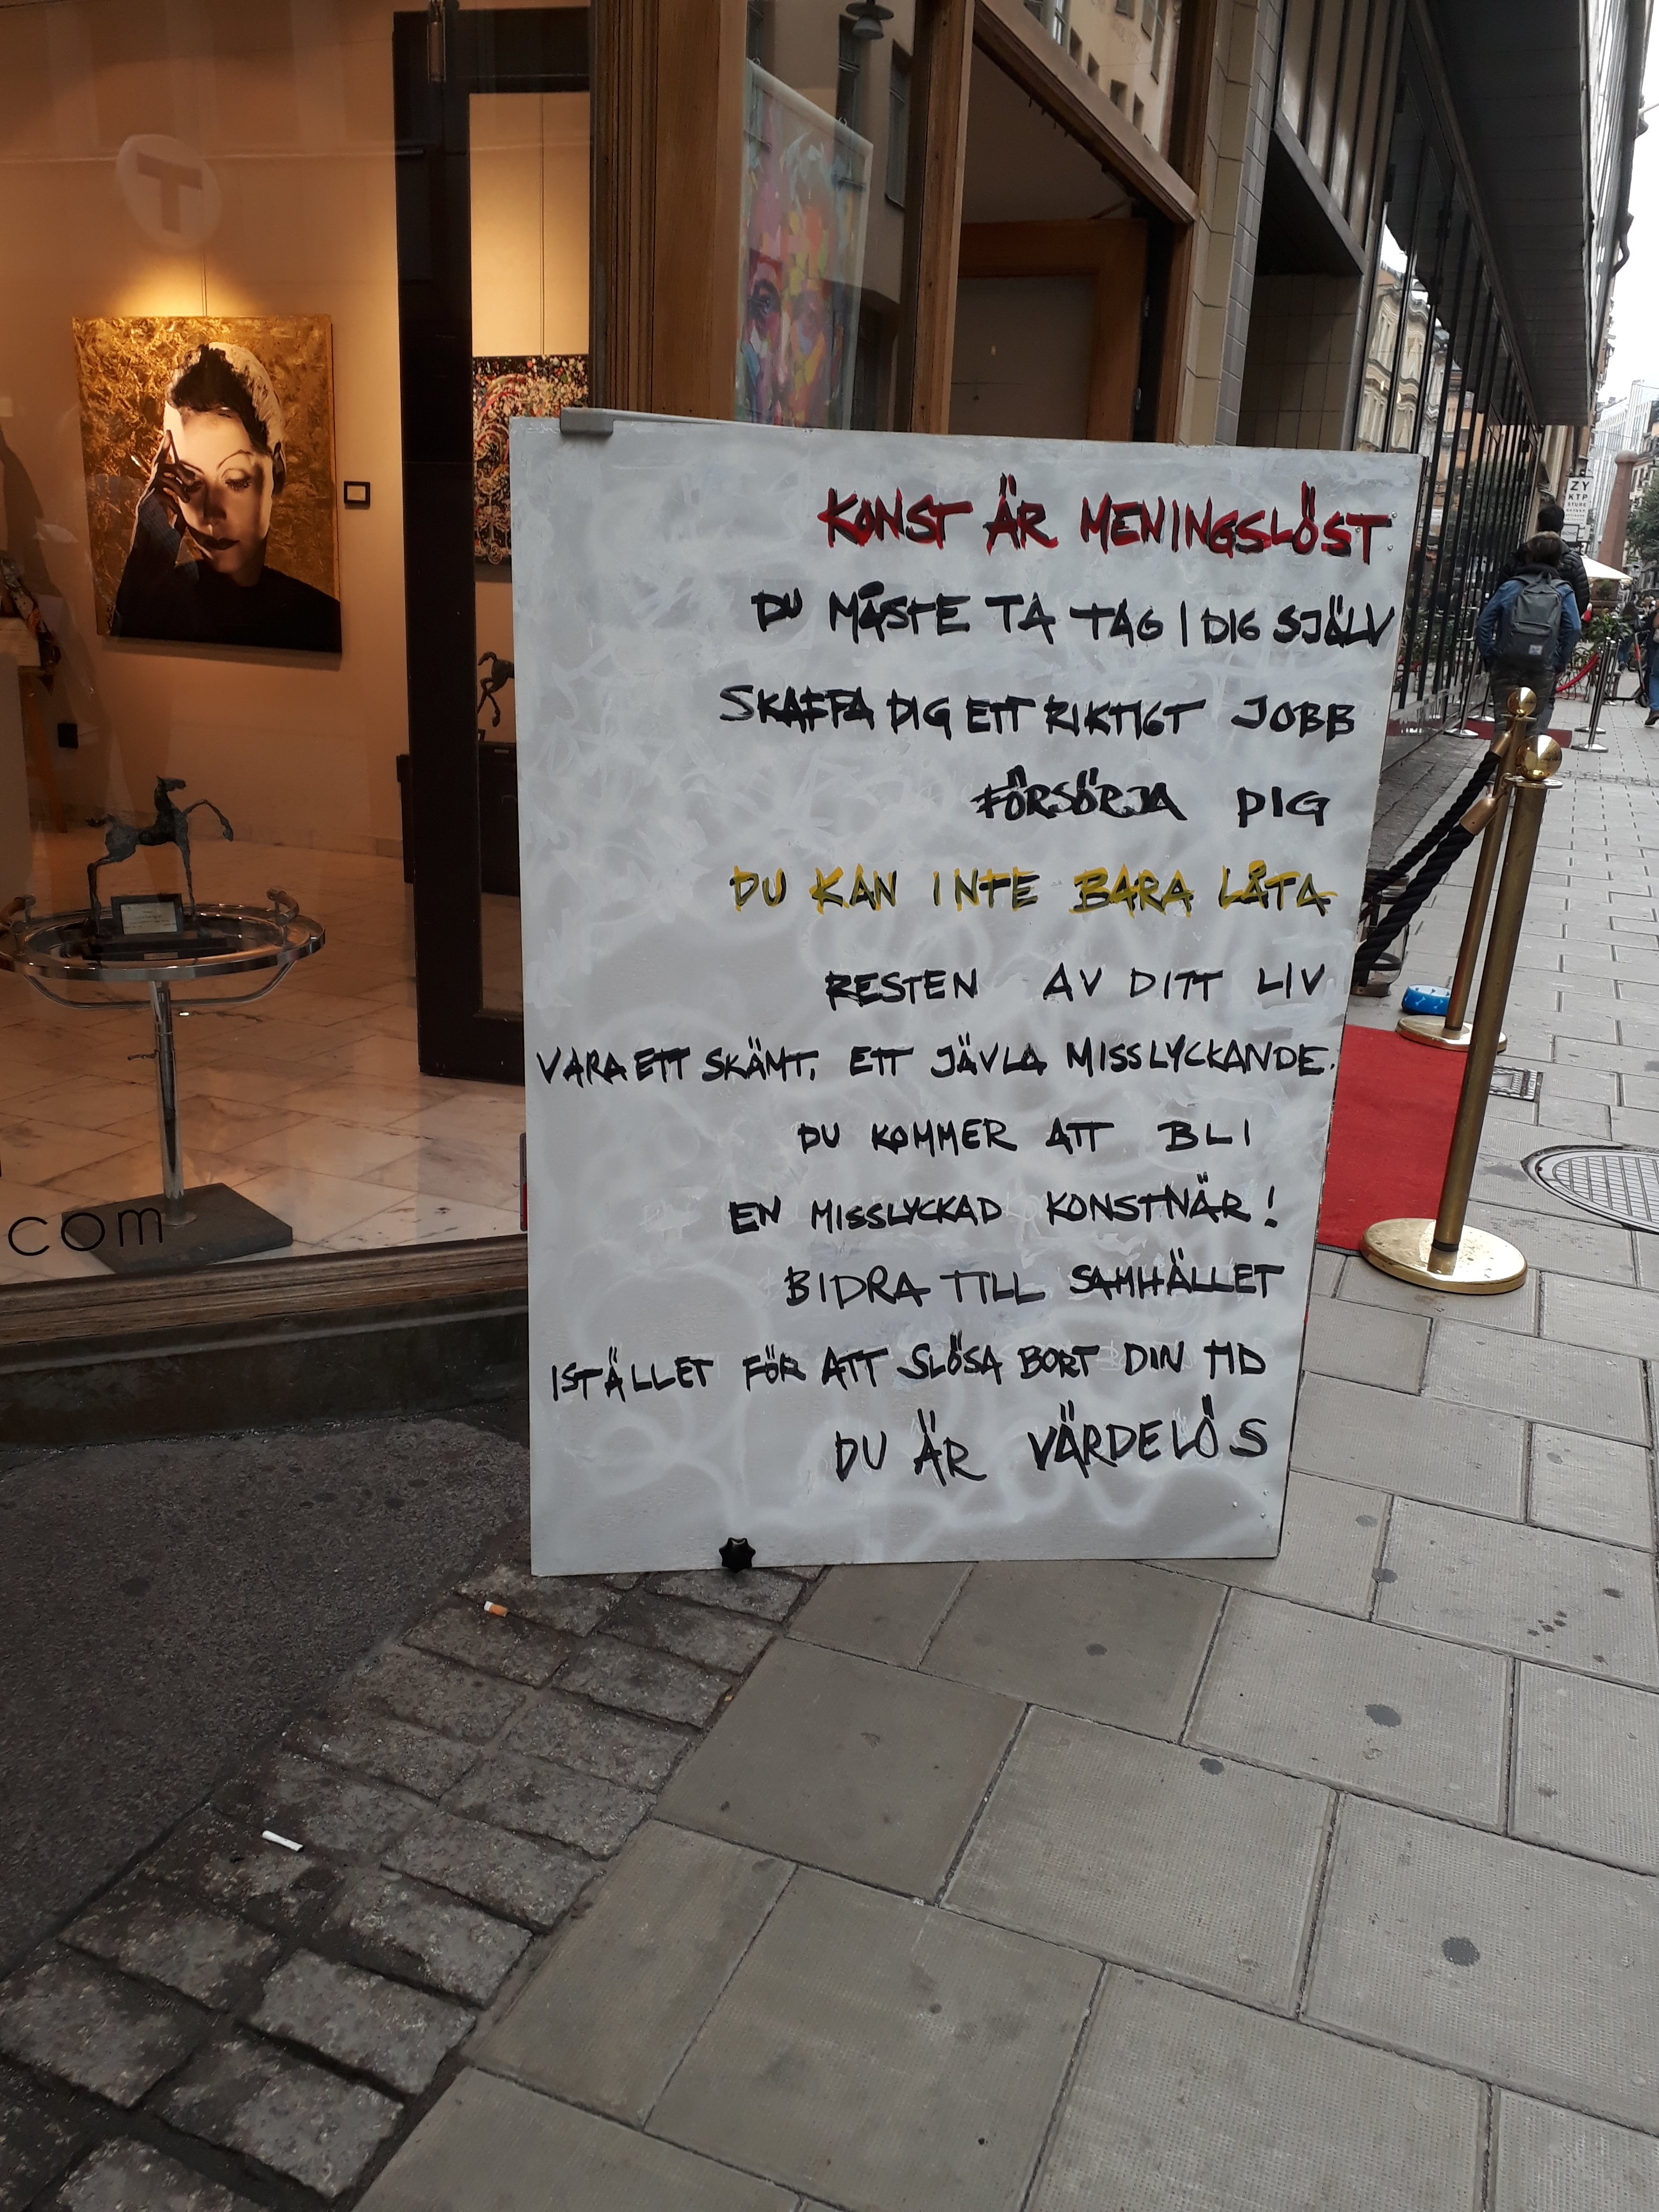 KONST ÄR MENINGSLÖST
DU MÅSTE TA TAG I DIG SJÄLV
SKAFFA DIG ETT RIKTIGT JOBB
FÖRSÖRJA DIG
DU KAN INTE BARA LÅTA
RESTEN AV DITT LIV
VARA ETT SKÄMT, ETT JÄVLA MISSLYCKANDE.
DU KOMMER ATT BLI
EN MISSLYCKAD KONSTNÄR!
BIDRA TILL SAMHÄLLET
ISTÄLLET FÖR ATT SLÖSA BORT DIN TID
DU ÄR VÄRDELÖS
T
com
ZY
KTP